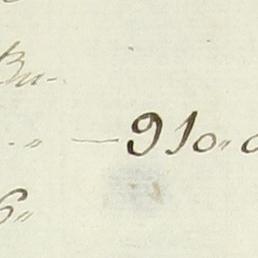 Bu-
. „ — 910„0
6„